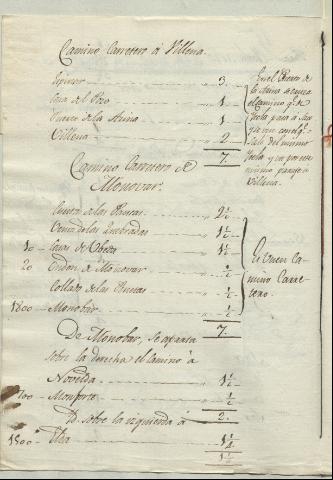 Camino Carretero á Villena.
Espinar 3.
Casa del Pozo 1.
Puerto de la Arina 1.
Villena 2.
7.
En el Puerto de
la Arina se cruza
el camino q.e de
Yecla para á
del mismo
Yecla y va por este
mismo parage á
Villena.
Camino Carretero á
Monovar.
Puerto de las Puntas 2½
Venta de las Quebradas 1½
10 Casas de Ubeda 1½
20 Cudon de Monovar ½
Collado de las Puntas ½
1800 Monobar ½
7.
Es buen Ca-
mino Carre-
tero.
De Monobar, se aparta
sobre la derecha el camino á
Novelda 1½
700 Monforte ½
2.
Yd. sobre la izquierda á
1500 Elda 1¼
1¼